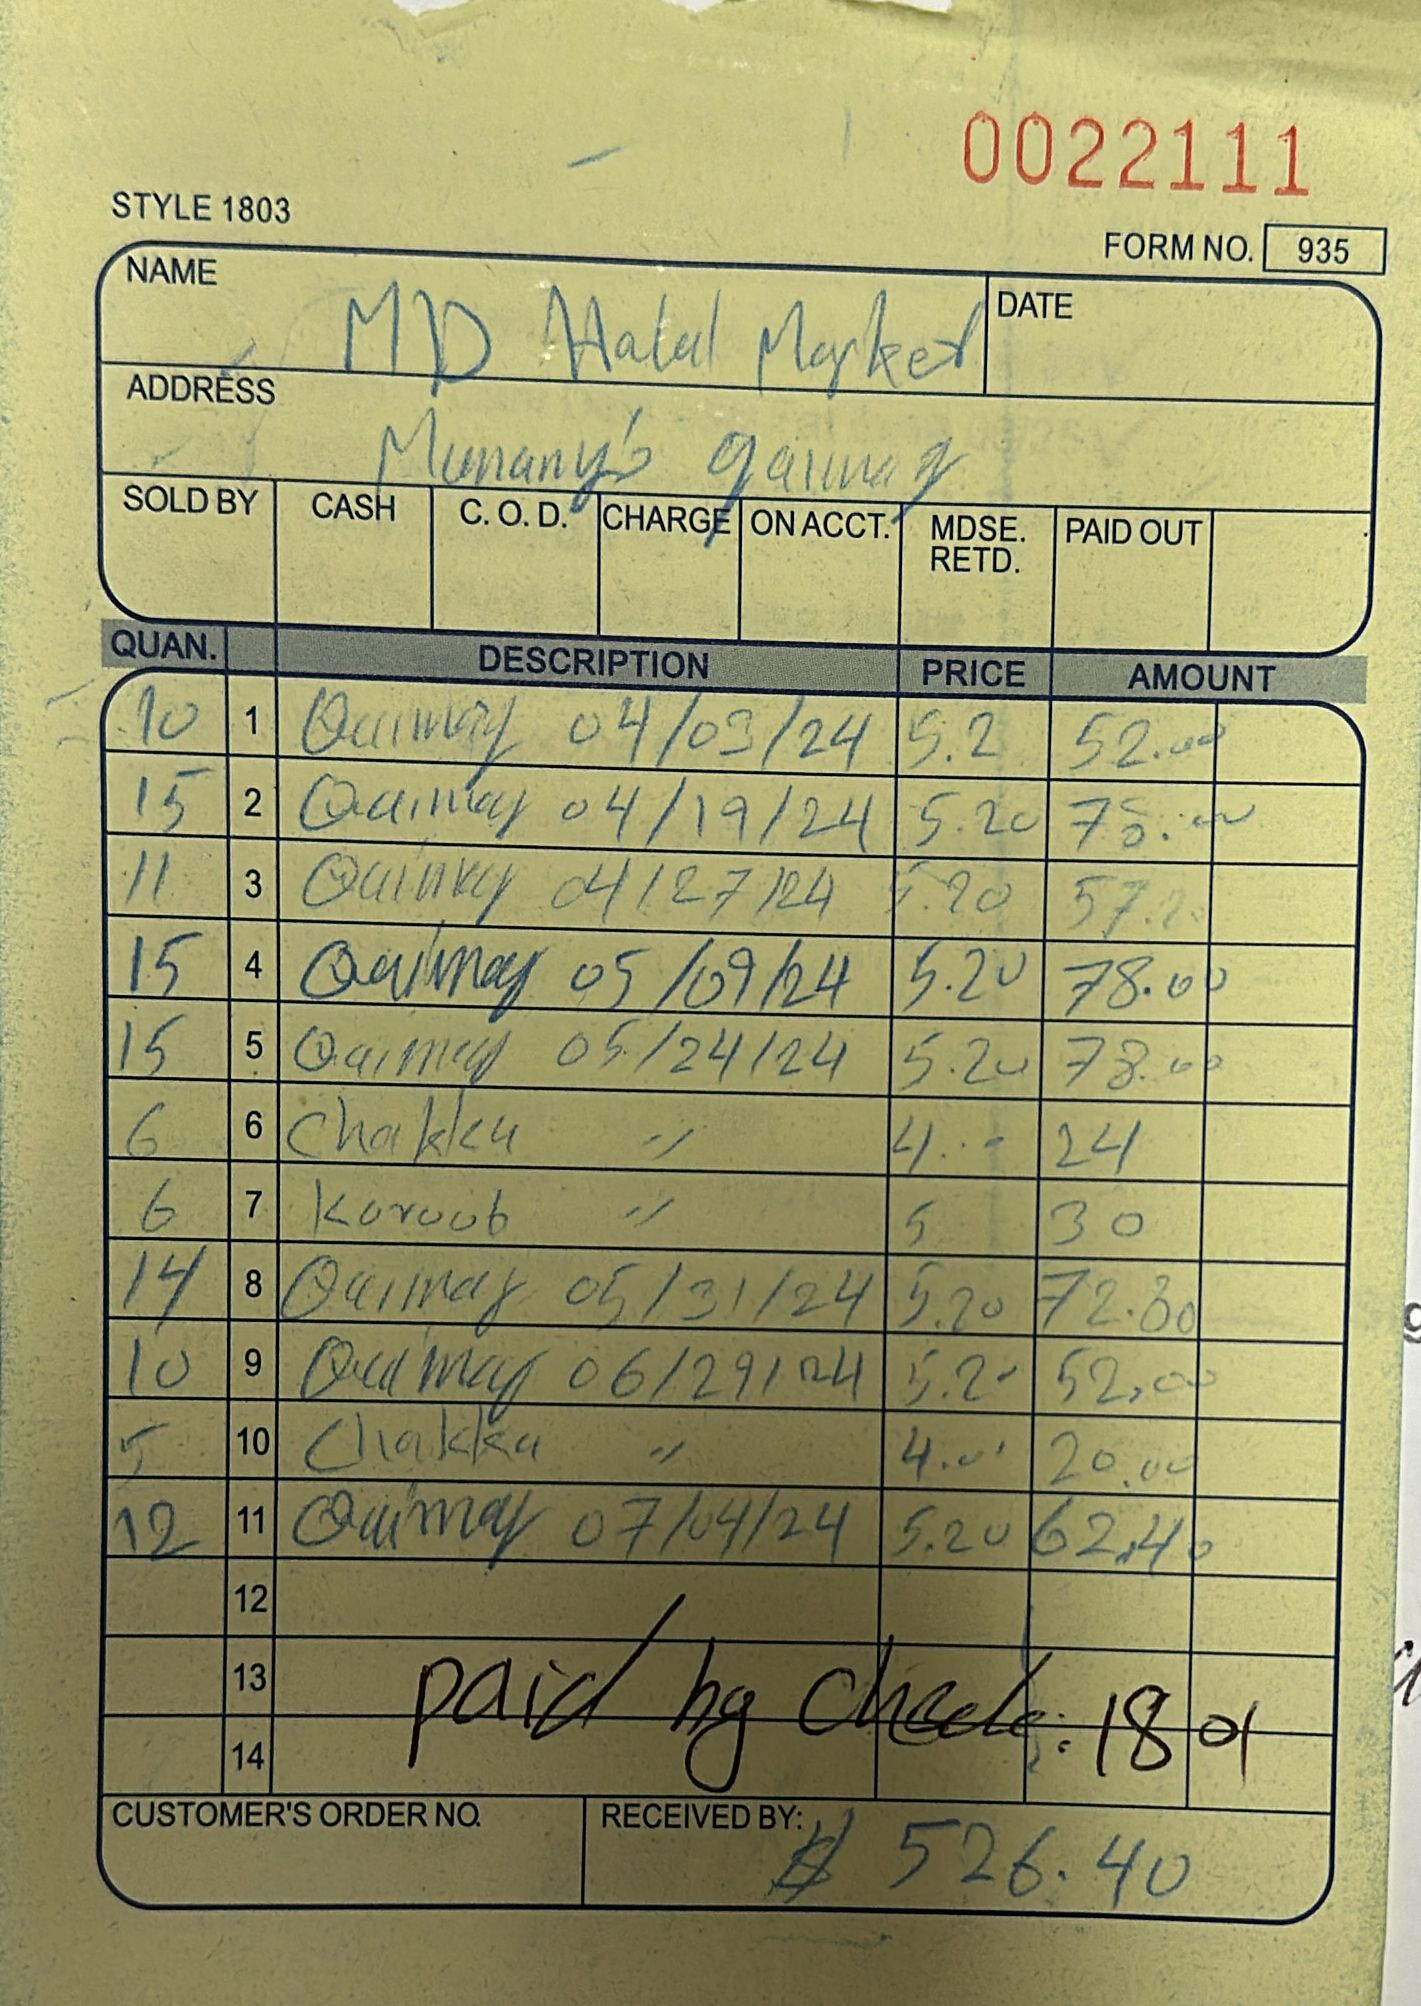 0022111
STYLE 1803
FORM NO. 935
NAME MD Halal Market DATE
ADDRESS
SOLD BY CASH C. O. D. CHARGE ON ACCT. MDSE. RETD. PAID OUT
QUAN. DESCRIPTION PRICE AMOUNT
10 1 Quimay 04/03/24 5.2 52.00
15 2 Quimay 04/19/24 5.20
11 3 Quimay 04/27/24 5.20 57.20
15 4 Quimay 05/09/24 5.20 78.00
15 5 Quimay 05/24/24 5.20 78.00
6 6 Chakka " 4.- 24
6 7 Koroob " 5 30
14 8 Quimay 05/31/24 5.20 72.80
10 9 Quimay 06/29/24 5.20 52.00
5 10 Chakka " 4.00 20.00
12 11 Quimay 07/04/24 5.20 62.40
12
13 paid by check: 1801
14
CUSTOMER'S ORDER NO. RECEIVED BY: $ 526.40